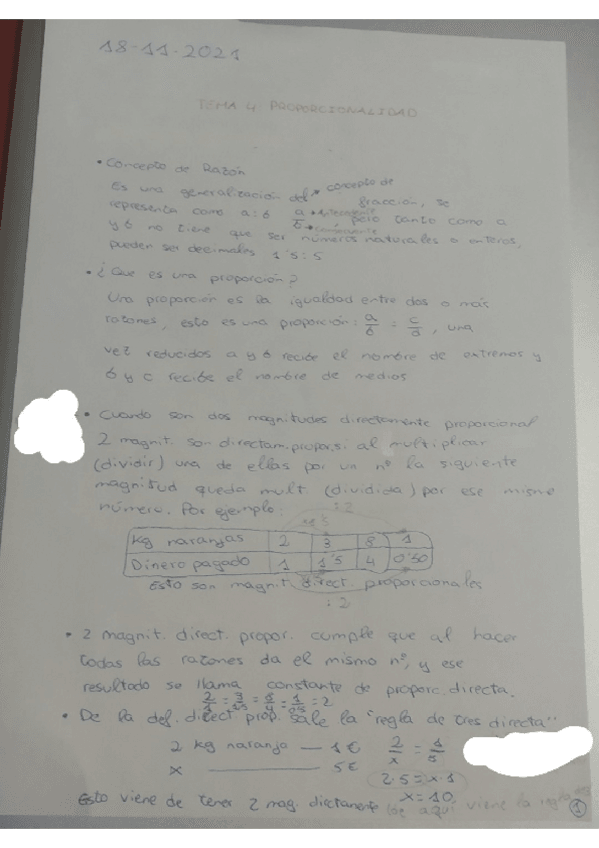 18-11-2021
TEMA 4 PROPORCIONALIDAD
• Concepto de Razón
Es una generalización del concepto de
fracción, se
representa como a:b a/b • Antecedente • consecuente pero tanto como a
y b no tiene que ser números naturales o enteros,
pueden ser decimales 1'5:5
• ¿Que es una proporción?
Una proporción es la igualdad entre dos o más
razones, esto es una proporción: a/b = c/d, una
vez reducidos a y d recibe el nombre de extremos y
b y c recibe el nombre de medios
• Cuando son dos magnitudes directamente proporcional
2 magnit. son directam. propor. si al multiplicar
(dividir) una de ellas por un nº la siguiente
magnitud queda mult. (dividida) por ese mismo
número. Por ejemplo:
:2
Kg naranjas 2 3 8 1
Dinero pagado 1 1'5 4 0'50
Esto son magnit. direct. proporcionales
:2
• 2 magnit. direct. propor. cumple que al hacer
todas las razones da el mismo nº, y ese
resultado se llama constante de proporc. directa.
2/1 = 3/1'5 = 8/4 = 1/0'5 = 2
• De la def. direct prop. sale la "regla de tres directa"
2 kg naranja — 1€ 2/x = 1/5
x — 5€
2·5=x·1
x=10
Esto viene de tener 2 mag. directamente de aquí viene la regla
1